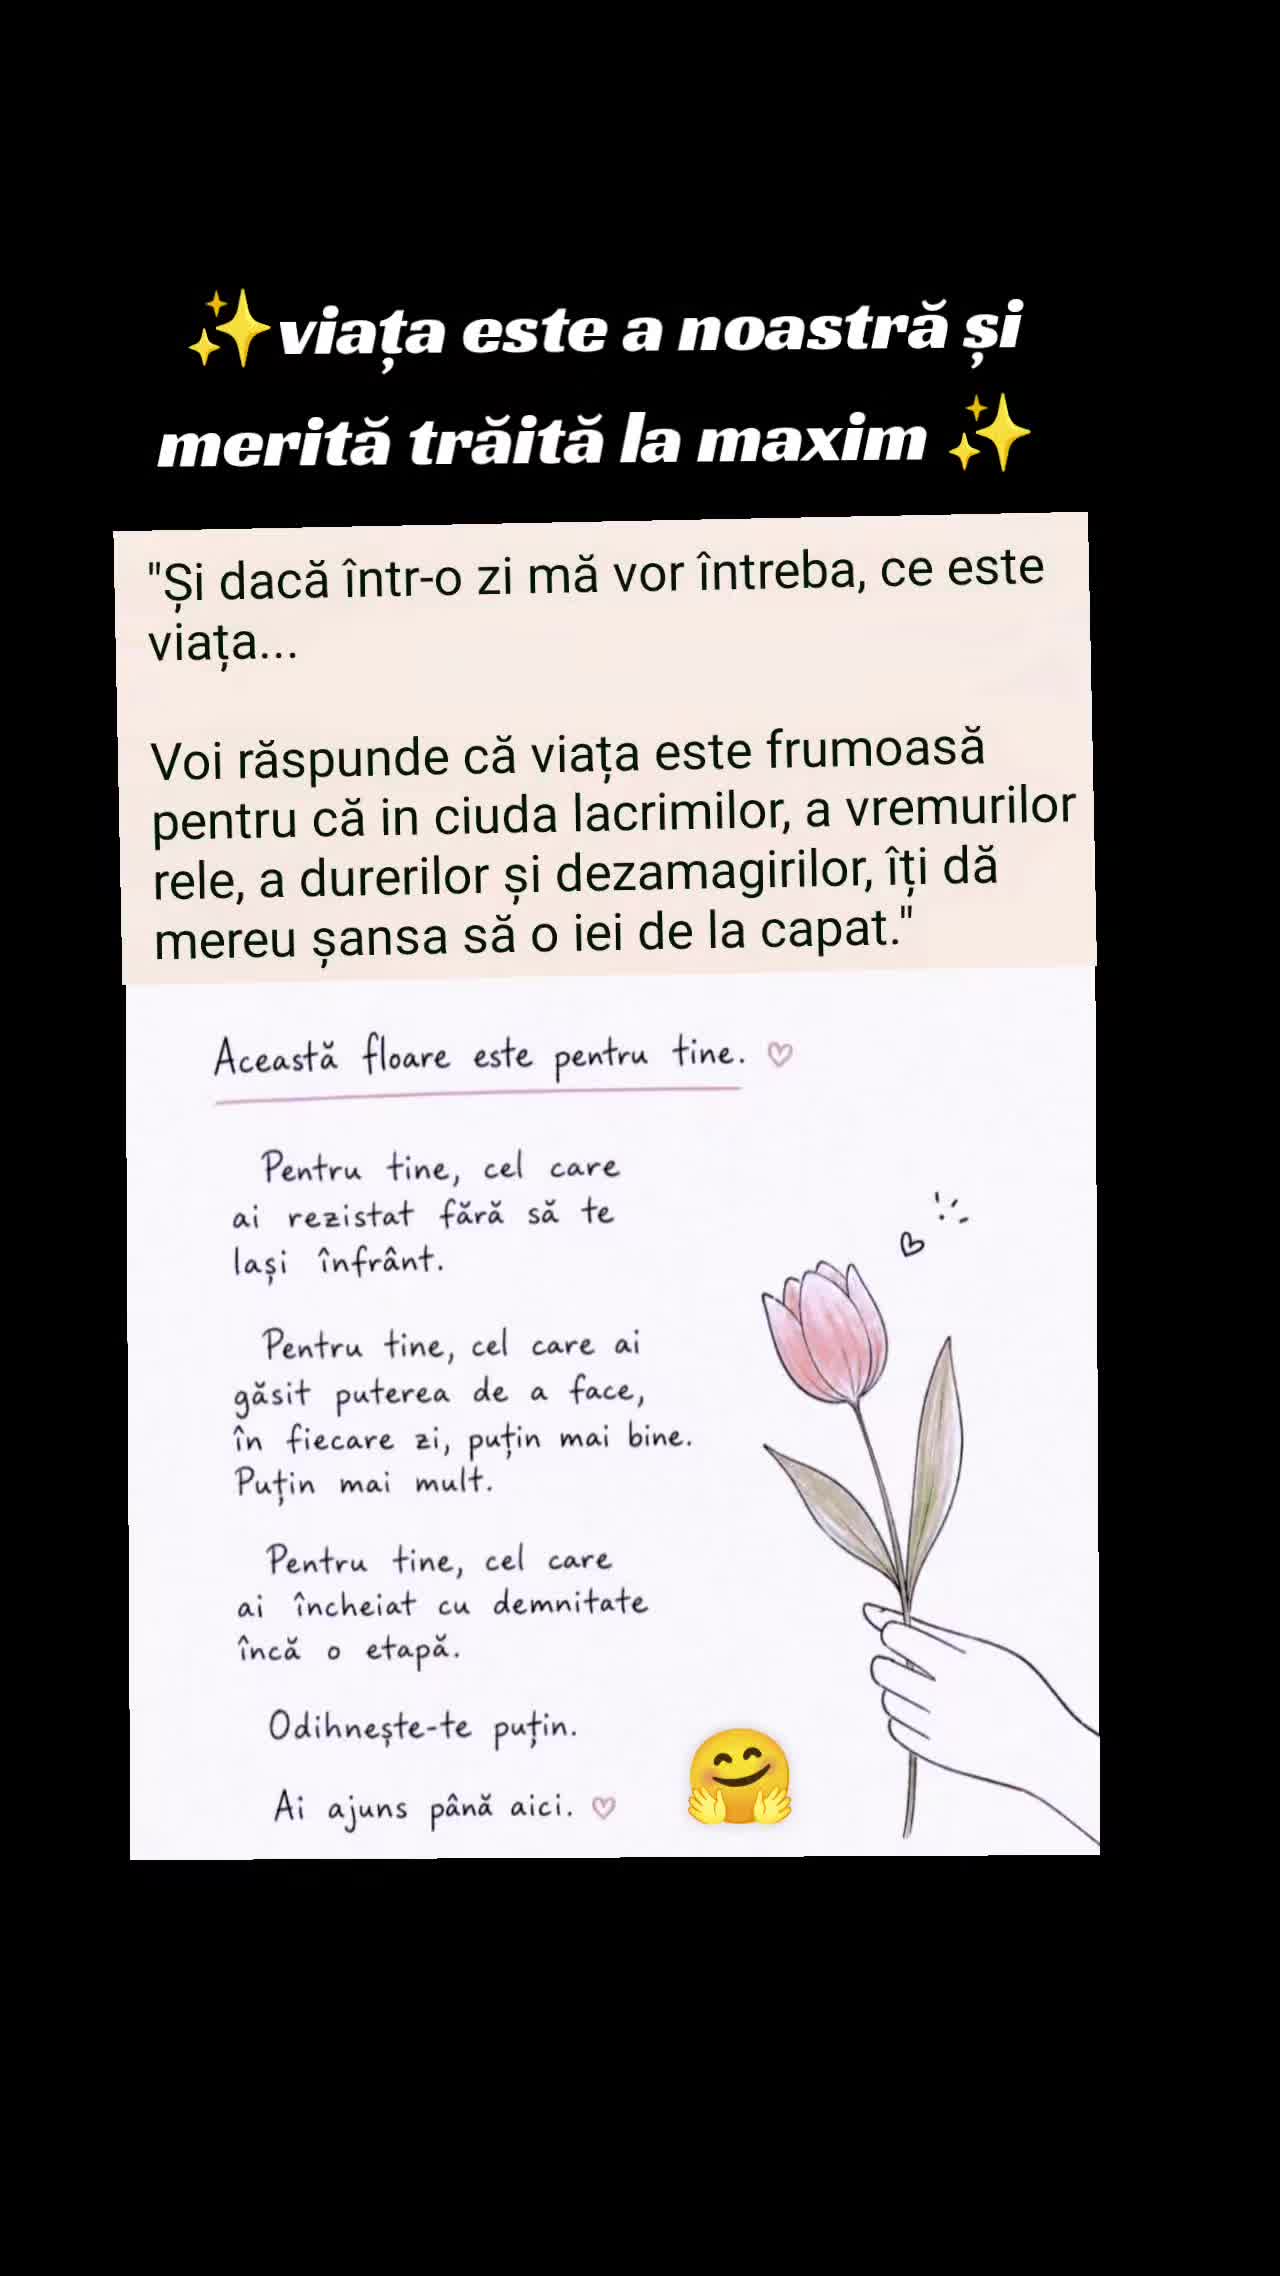 ✨viața este a noastră și
merită trăită la maxim ✨
"Și dacă într-o zi mă vor întreba, ce este
viața...
Voi răspunde că viața este frumoasă
pentru că in ciuda lacrimilor, a vremurilor
rele, a durerilor și dezamagirilor, îți dă
mereu șansa să o iei de la capat."
Această floare este pentru tine. ♡
Pentru tine, cel care
ai rezistat fără să te
lași înfrânt.
Pentru tine, cel care ai
găsit puterea de a face,
în fiecare zi, puțin mai bine.
Puțin mai mult.
Pentru tine, cel care
ai încheiat cu demnitate
încă o etapă.
Odihnește-te puțin.
Ai ajuns până aici. ♡